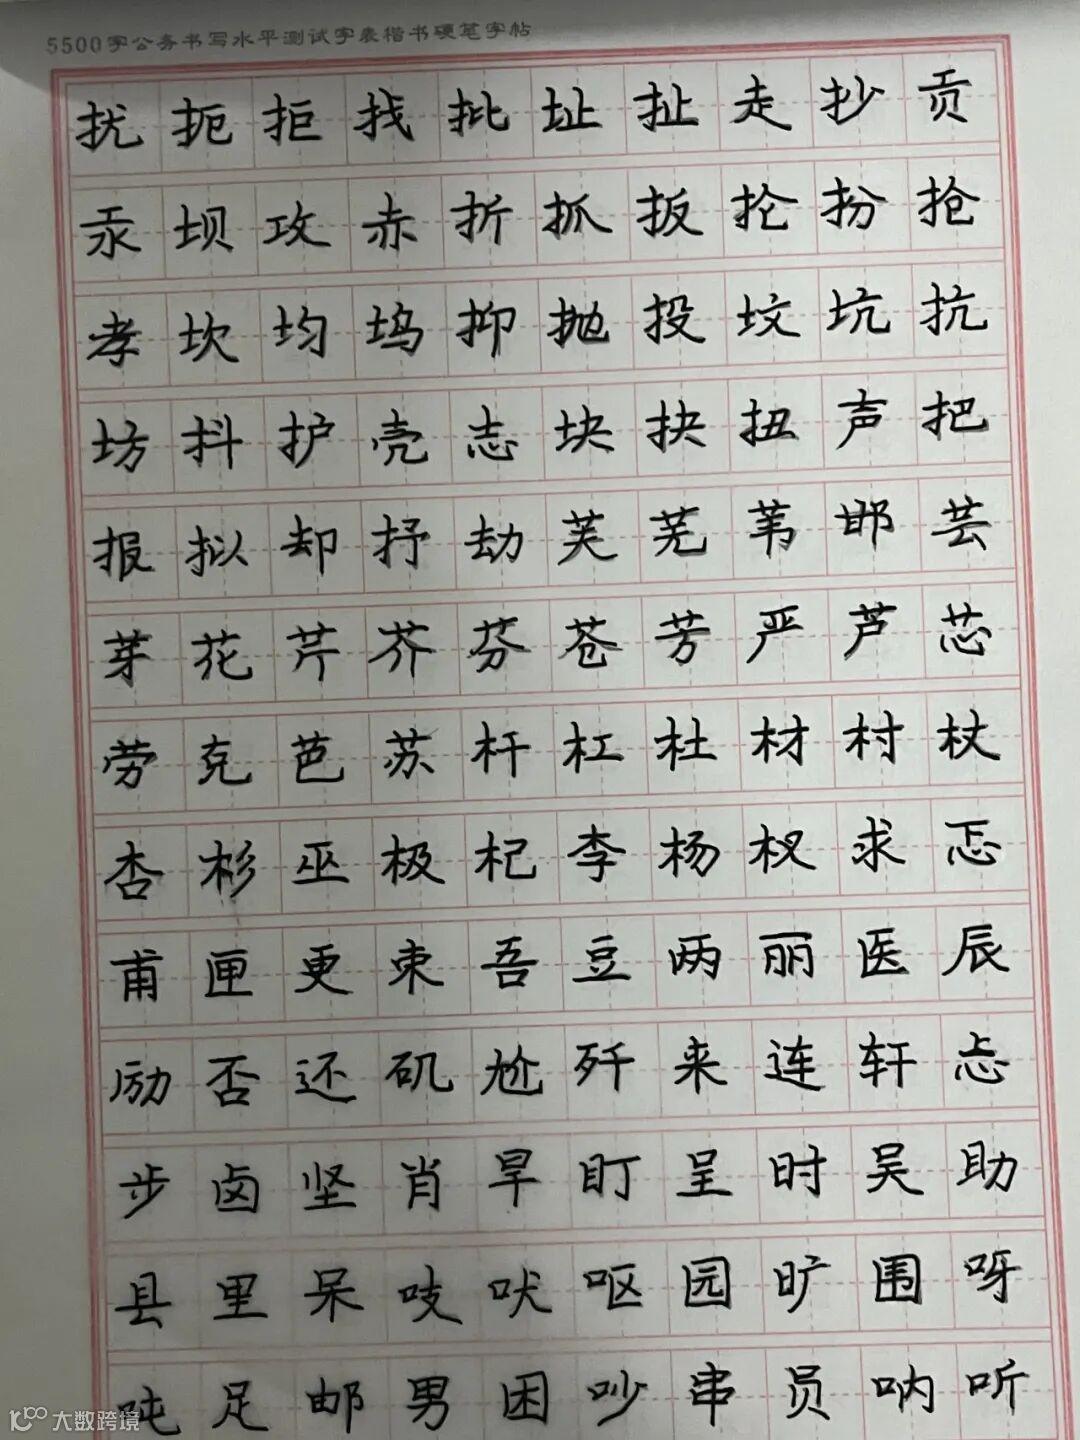 5500字公务书写水平测试字表楷书硬笔字帖
扰扼拒找批址扯走抄贡
汞坝攻赤折抓扳抡扮抢
孝坎均坞抑抛投坟坑抗
坊抖护壳志块抉扭声把
报拟却抒劫芙芜苇邯芸
芽花芹芥芬苍芳严芦芯
劳克芭苏杆杠杜材村杖
杏杉巫极杞李杨杈求忑
甫匣更束吾豆两丽医辰
励否还矶尬歼来连轩忐
步卤坚肖旱盯呈时吴助
县里呆吱吠呕园旷围呀
吨足邮男困吵串员呐听
大数跨境